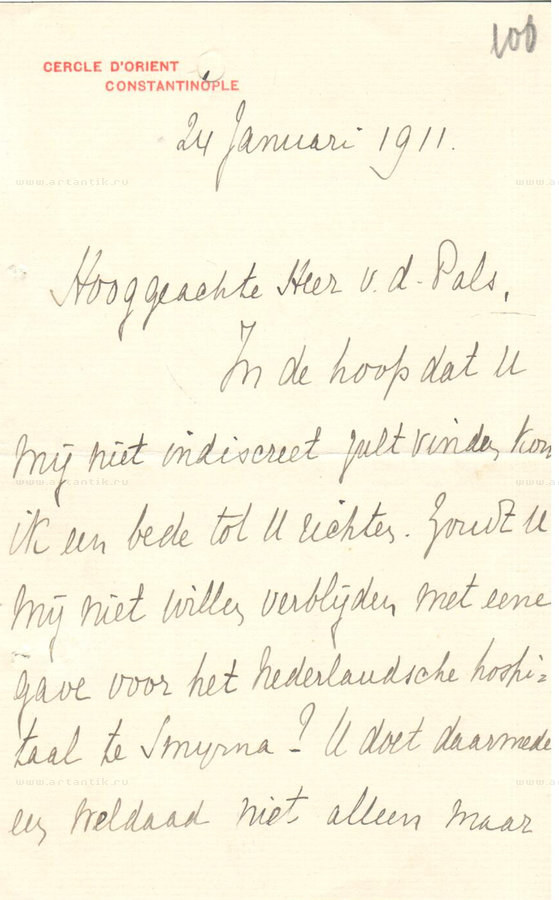 100
CERCLE D'ORIENT
CONSTANTINOPLE
24 Januari 1911.
www.artantik.ru
Hooggeachte Heer v. d. Pals,
In de hoop dat U
mij niet indiscreet zult vinden kom
www.artantik.ru
ik een bede tot U richten. Zoudt U
mij niet willen verblijden met eene
gave voor het Nederlandsche hospi=
taal te Smyrna? U doet daarmede
www.artantik.ru
een weldaad niet alleen maar